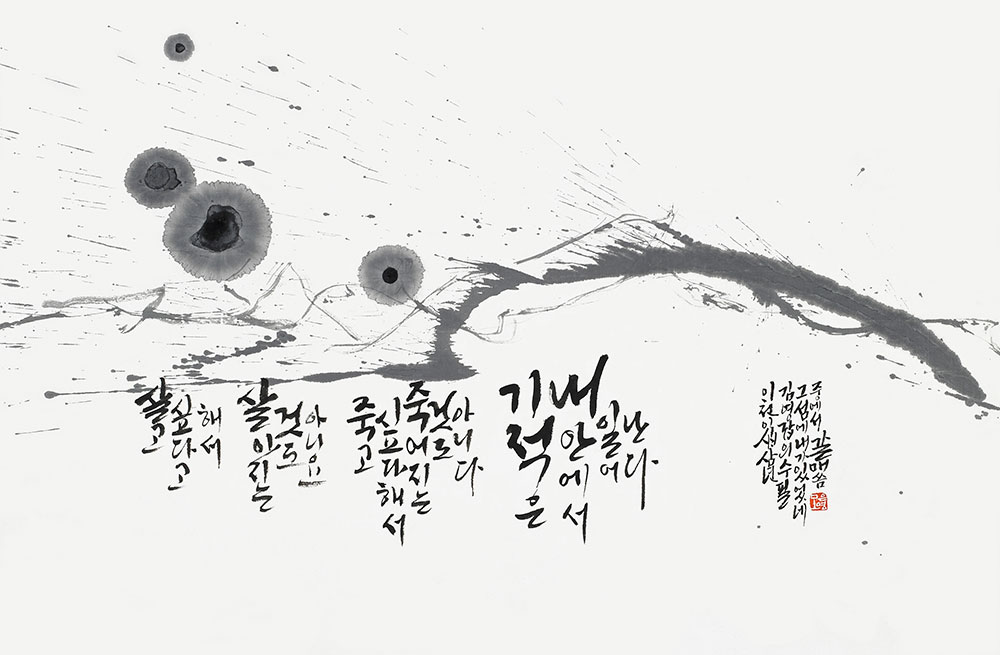 살고
싶다고
해서
살아지는
것도
아니요
죽고
싶다해서
죽어지는
것도
아니다
기적은
내안에서
일어
난다
이천이십삼년
김영갑의수필
그섬에내가있었네
중에서 갈매 씀